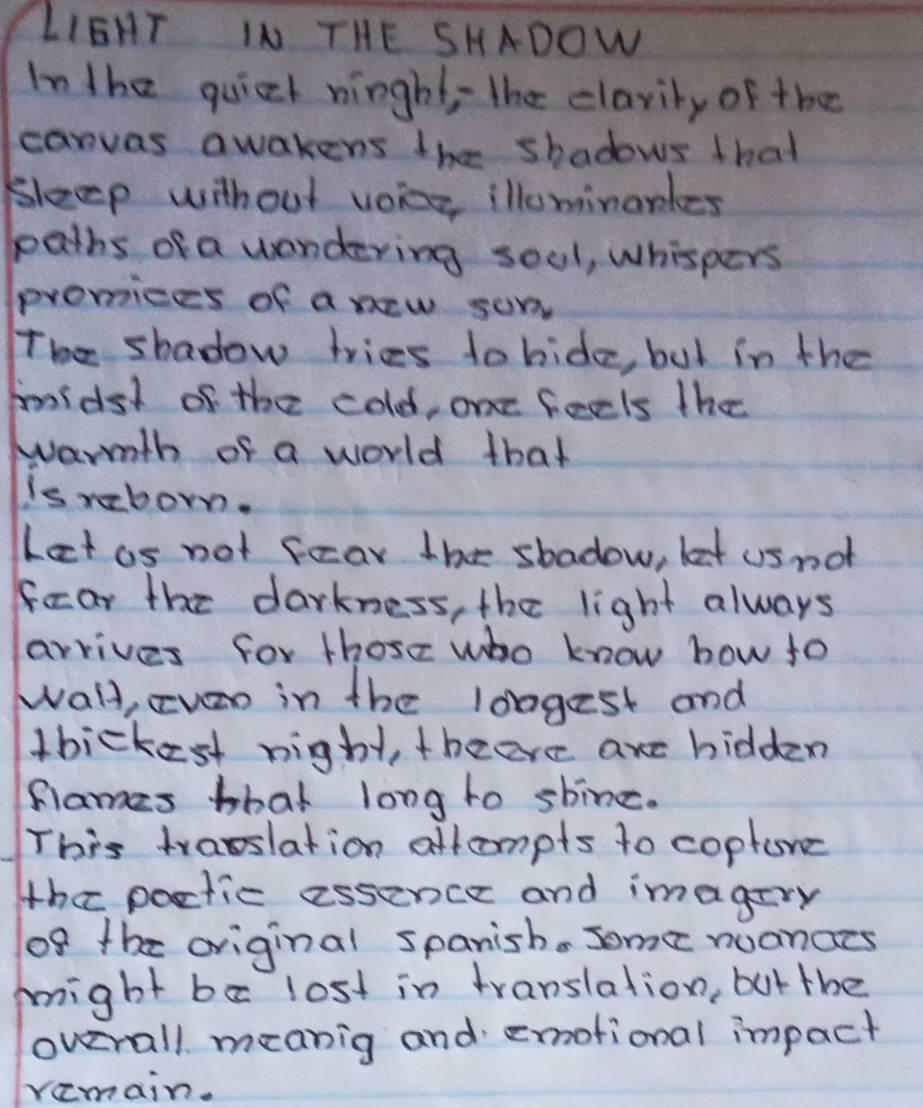 LIGHT IN THE SHADOW
In the quiet ninght, the clarity of the
canvas awakens the shadows that
sleep without voice, illuminantes
paths of a wandering soul, whispers
promices of a new sun,
The shadow tries to hide, but in the
midst of the cold, one feels the
warmth of a world that
is reborn.
Let us not fear the shadow, let us not
fear the darkness, the light always
arrives for those who know how to
wait, even in the longest and
thickest night, theere are hidden
flames that long to shine.
This translation attempts to capture
the poetic essence and imagery
of the original spanish. Some nuances
might be lost in translation, but the
overall meanig and emotional impact
remain.